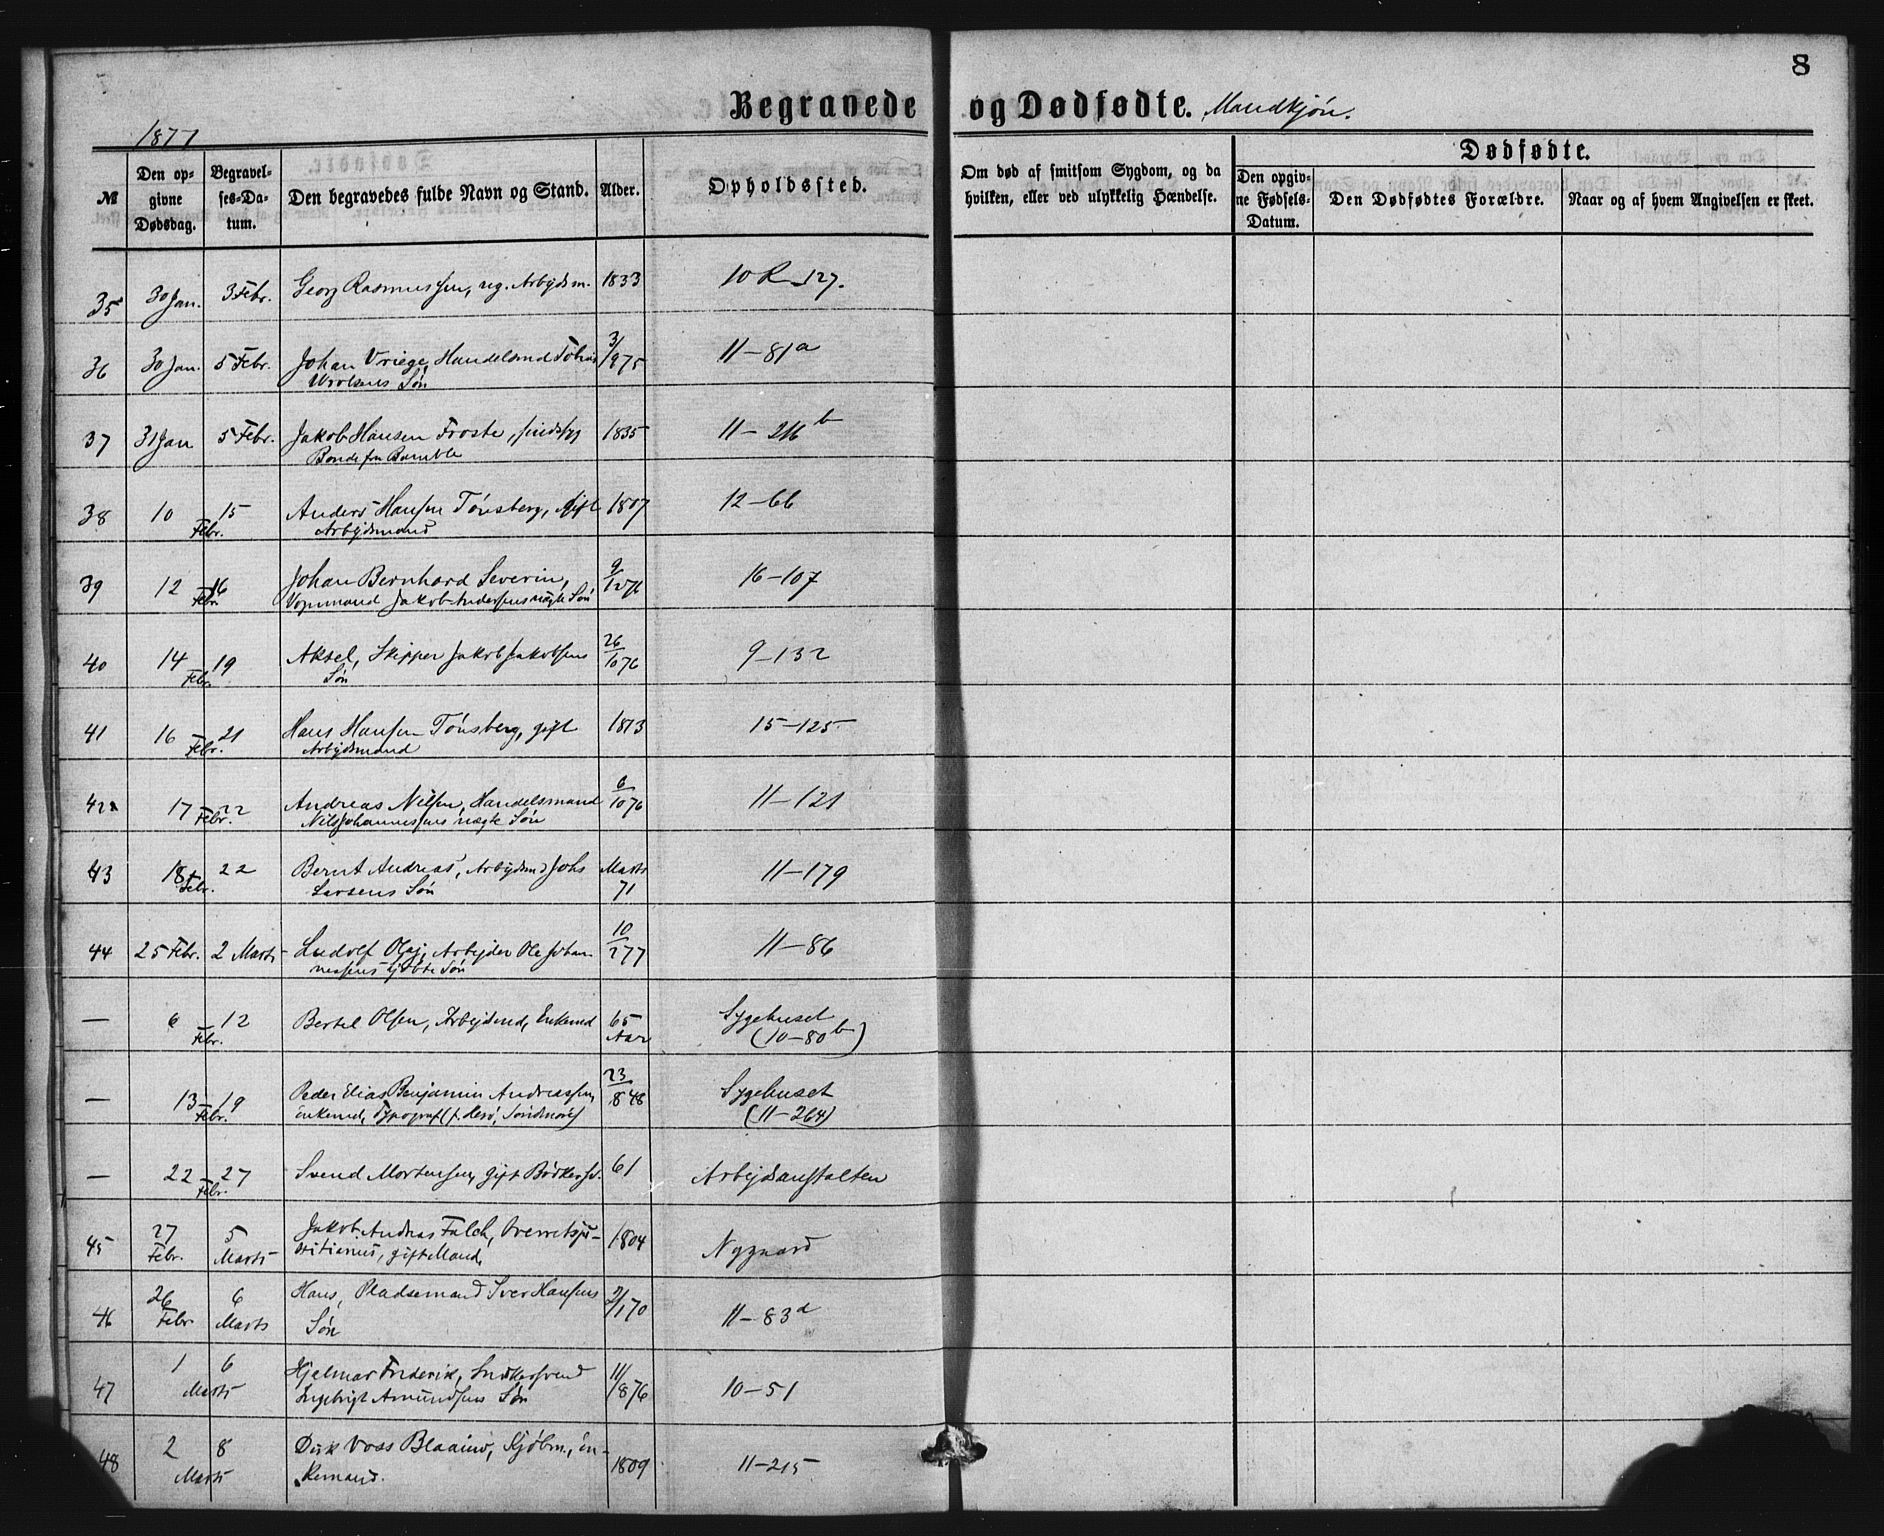 8
Begravede og Dødfødte. Mandkjøn.
1877
№
Den opgivne Dødsdag.
Begravelses-Datum.
Den begravedes fulde Navn og Stand.
Alder.
Opholdssted.
Om død af smitsom Sygdom, og da hvilken, eller ved ulykkelig Hændelse.
Dødfødte.
Den opgivne Fødsels-Datum.
Den Dødfødtes Forældre.
Naar og af hvem Angivelsen er skeet.
35 30 Jan. 3 Febr. Georg Rasmussen, ug. Arbejdsm. 1833 10 R 127.
36 30 Jan. 5 Febr. Johan Vriege, Handelsmd Tobias 3/9 75 11-81a
Søn
37 31 Jan 5 Febr. Jakob Hansen Froste, 1835 11-216b
Bonde fra Bamble
38 10 15 Febr. Anders Hansen Tønsberg, gift 1807 12-66
Arbejdsmand
39 12 16 Febr Johan Bernhard Severin, 9/12 76 16-107
Vognmand Jakob Andersens uægte Søn
40 14 19 Febr. Aksel, Skipper Jakob Jakobsens 26/10 76 9-132
Søn
41 16 21 Febr. Hans Hansen Tønsberg, gift 1813 15-125
Arbejdsmand
42 17 22 Febr. Andreas Nilsen, Handelsmand 6/10 76 11-121
Nils Johannessens uægte Søn
43 18 22 Febr. Bernt Andreas, Arbejdsmd Johs Marts 71 11-179
Larsens Søn
44 25 Febr. 2 Marts Ludolf Olaj, Arbejder Ole Johan- 10/2 77 11-86
nessens Søn
— 6 12 Febr. Bertel Olsen, Arbejdsmd, Enkemd 65 Aar Sygehuset (10-80b)
— 13 19 Febr. Peder Elias Benjamin Andreassen, 23/8 48 Sygehuset (11-264)
Enkemd, Typograf (f. Herø, Søndmøre)
— 22 27 Febr. Svend Mortensen, gift Bødkersv. 61 Arbejdsanstalten
45 27 Febr. 5 Marts Jakob Andreas Falch, Overretsju- 1804 Nygaard
stitiarius, gift Mand,
46 26 Febr 6 Marts Hans, Pladsemand Iver Hansens 2/1 70 11-83d
Søn
47 1 6 Marts Hjalmar Frederik, Snedkersvend 11/8 76 10-51
Ingebrigt Amundsens Søn
48 2 8 Marts Dirk Voss Blaauw, Kjøbm., en- 1809 11-215
kemand.